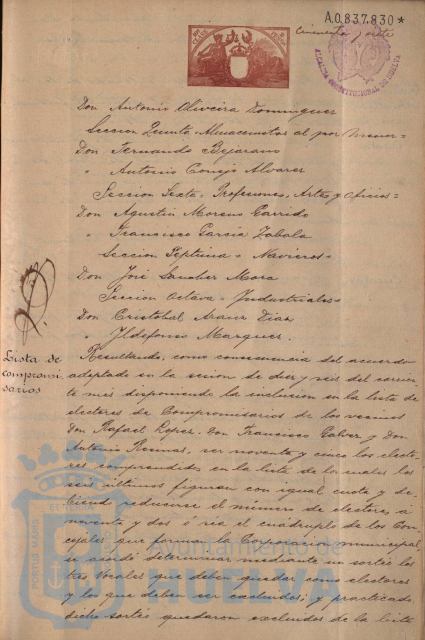 A.0.837.830 *
cincuenta y siete
ALCALDIA CONSTITUCIONAL DE HUELVA
Don Antonio Oliveira Dominguez
Seccion Quinta Almacenistas al por menor=
Don Fernando Bejarano
" Antonio Conejo Alvarez
Seccion Sexta = Profesiones, Artes y Oficios=
Don Agustin Moreno Garrido
" Francisco Garcia Zabala
Seccion Septima = Navieros=
Don José Sanchez Mora
Seccion Octava = Industriales=
Don Cristobal Arauz Diaz
" Ildefonso Marquez.
Lista de
compromi
sarios
Resultando, como consecuencia del acuerdo
adoptado en la sesion de diez y seis del corrien
te mes disponiendo la inclusion en la lista de
electores de Compromisarios de los vecinos
Don Rafael Lopez, Don Francisco Galvez y Don
Antonio Rosmas, ser noventa y cinco los electo
res comprendidos en la lista de los cuales los
seis últimos figuran con igual cuota y de
biendo reducirse el número de electores á
noventa y dos ó sea el cuádruplo de los Con
cejales que forman la Corporacion municipal,
se acordó determinar mediante un sorteo los
tres Vocales que deben quedar como electores
y los que deben ser excluidos; y practicado
dicho sorteo quedaron excluidos de la lista
PORTUS MARIS ET TERRAE CUSTODIA
Ayuntamiento de
HUELVA